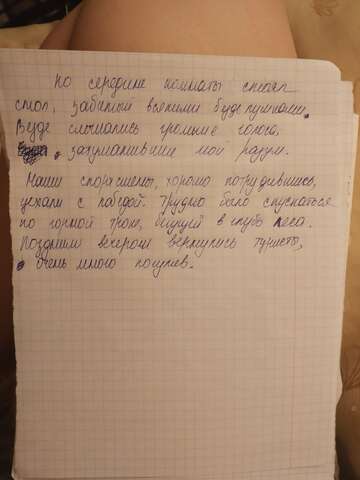 По середине комнаты стоял
стол, забитый всякими будепушками.
Везде слышались громкие голоса,
затуманившие мой разум.
Наши спортсмены, хорошо потрудившись,
уехали с победой. Трудно было спускаться
по горной тропе, бегущей в глубь леса.
Поздним вечером вернулись туристы,
очень много покупив.